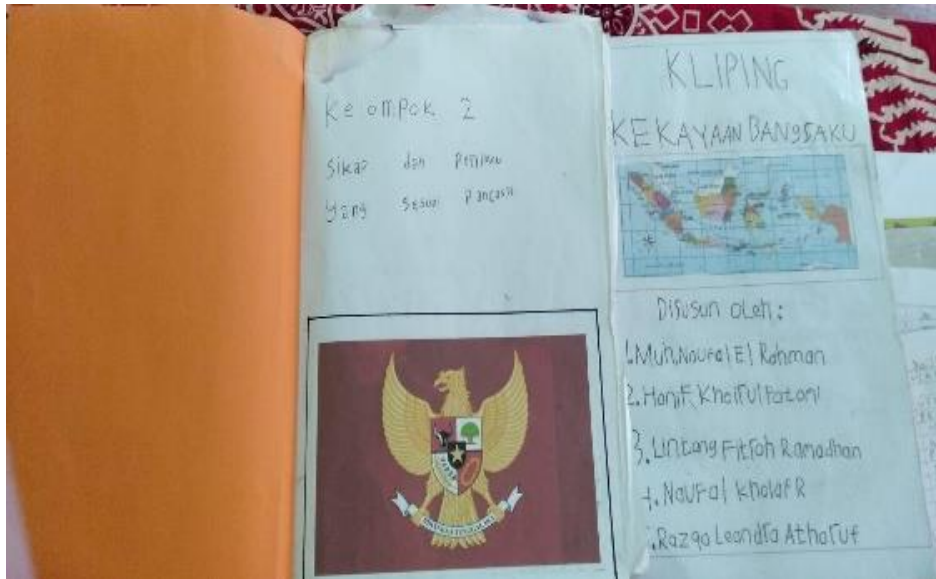 Kelompok 2
Sikap dan
Yang Sesuai
KLIPING
KEKAYAAN BANGSAKU
Disusun oleh:
1. Muh. Noufal El Rahman
2. Hanif Khoirul Fatoni
3. Lintang Fitroh Ramadhan
4. Noufal Kholaf R
5. Razqa Leandra Atharuf